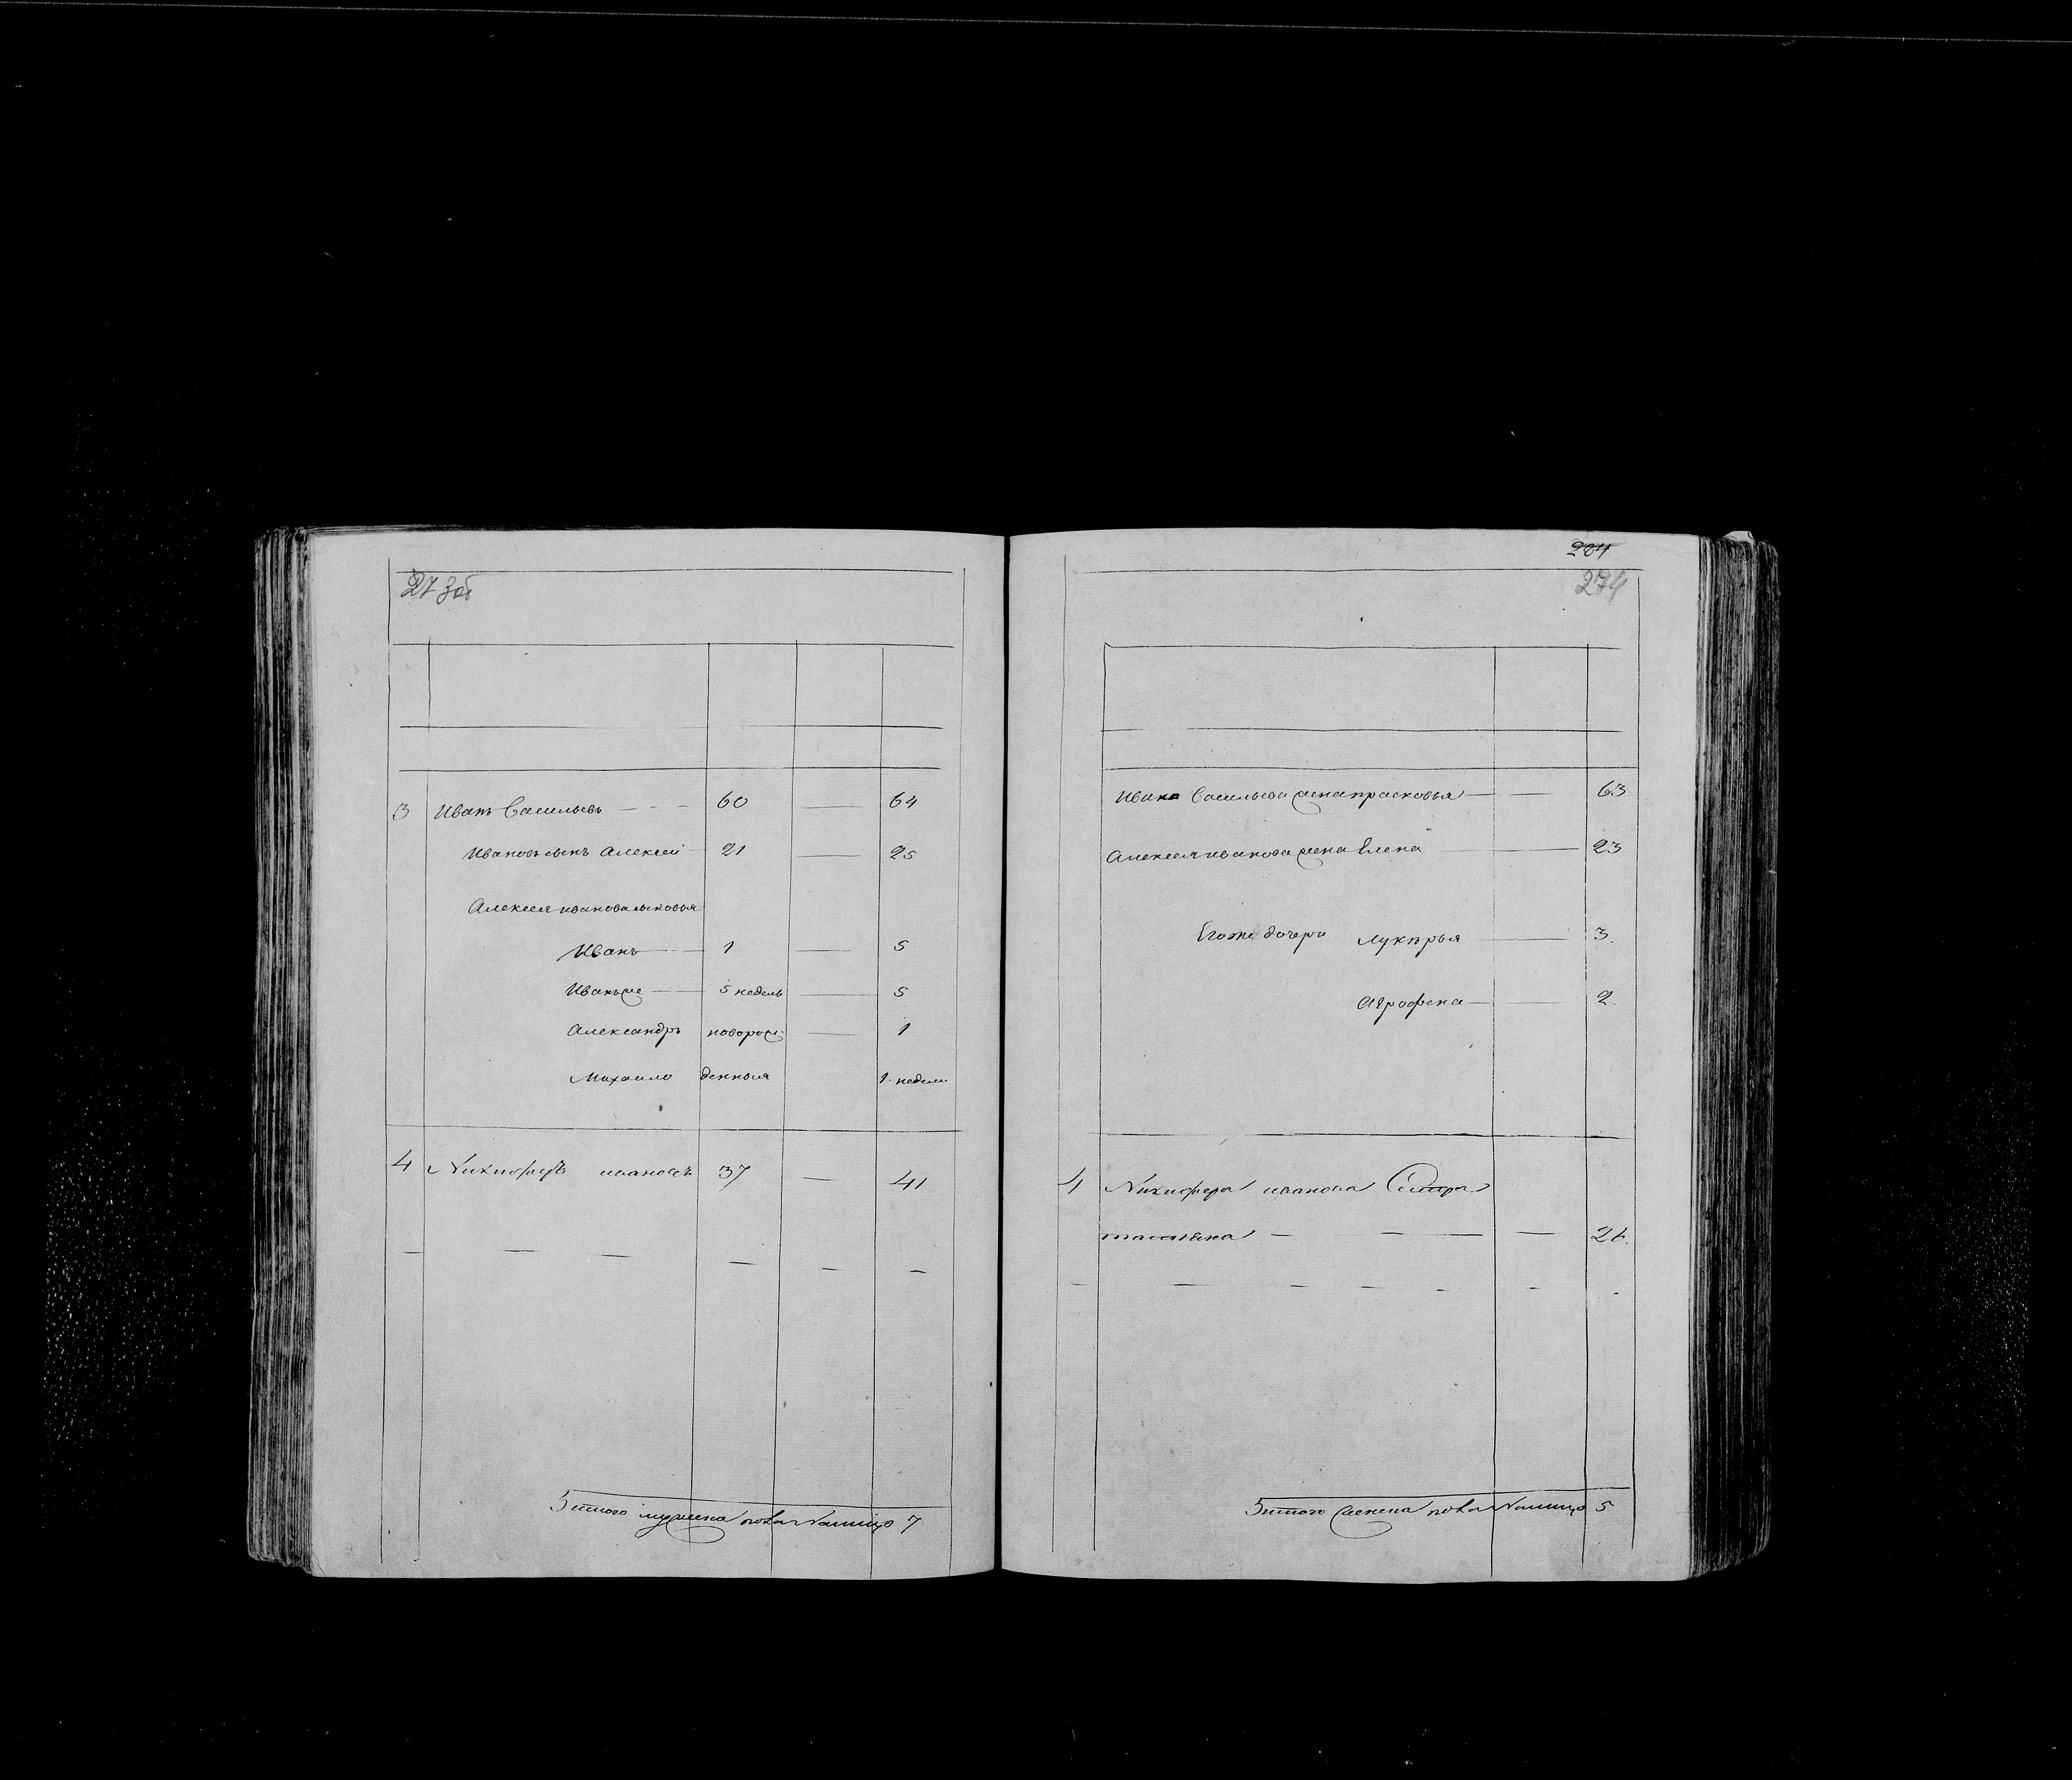 273об
3 Иванъ Васильевъ — 60 — 64
Ивановъ сынъ Алексей 21 — 25
Алексея иванова сыновья
Иванъ — 1 — 5
Иванъ же — 5 недель — 5
Александръ новорож — 1
Михаило денныя 1. недели
4 Никифоръ ивановъ 37 — 41
Итого мужеска пола налицо 7
284
274
Ивана Васильева жена прасковья — 63
Алексея иванова жена Елена — 23
Егоже дочери Лукерья — 3.
Агрофена — 2.
4 Никифора иванова Сестра
— — — 26.
Итого женска пола налицо 5